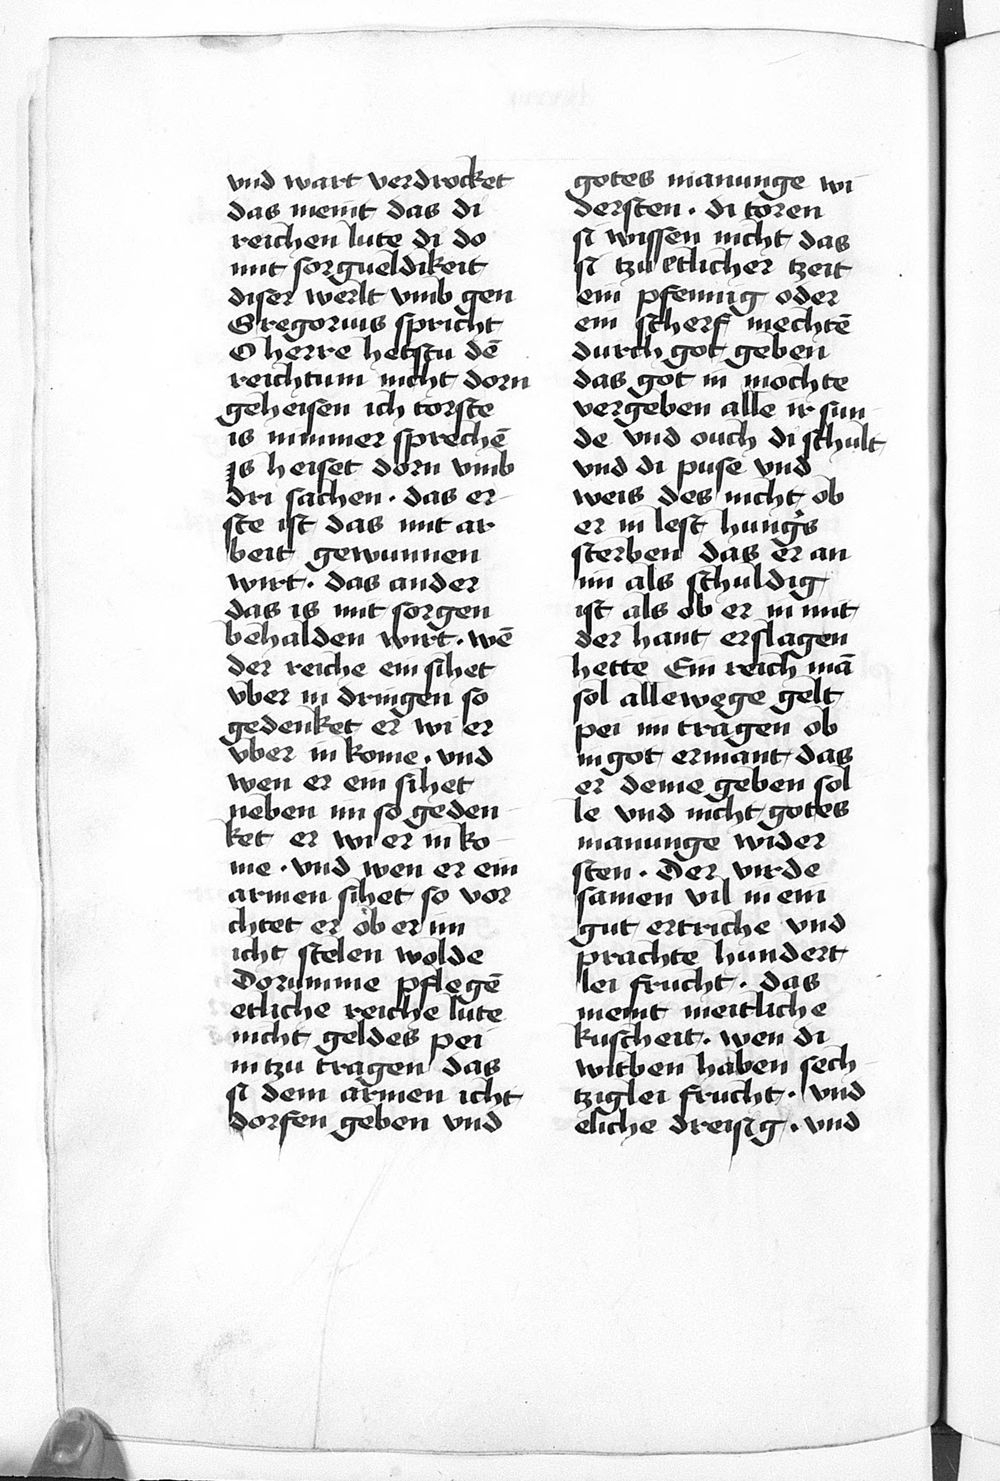 vnd wart verdrocket
das meint das di
reichen lute di do
mit sorgueldikeit
diser werlt vmb gen
Gregorius spricht
O herre hetstu dē
reichtum nicht dorn
geheisen ich torste
is nimmer sprechē
Js heiset dorn vmb
dri sachen · das er
ste ist das mit ar
beit gewunnen
wirt · das ander
das is mit sorgen
behalden wirt · wē
der reiche ein sihet
vber in dringen so
gedenket er wi er
vber in kome · vnd
wen er ein sihet
neben im so geden
ket er wi er in ko
me · vnd wen er ein
armen sihet so vor
chtet er ob er im
icht stelen wolde
Dorumme pflegē
etliche reiche lute
nicht geldes pei
in tzu tragen das
si dem armen icht
dorfen geben vnd
gotes manunge wi
dersten · di toren
si wissen nicht das
si tzu etlicher tzeit
ein pfennig oder
ein scherf mechtē
durch got geben
das got in mochte
vergeben alle ir sun
de vnd ouch di schult
vnd di puse vnd
weis des nicht ob
er in lest hung's
sterben das er an
im als schuldig
ist als ob er in mit
der hant erslagen
hette Ein reich mā
sol allewege gelt
pei im tragen ob
in got ermant das
er deme geben sol
le vnd nicht gotes
manunge wider
sten · Der virde
samen vil in ein
gut ertriche vnd
prachte hundert
lei frucht · das
meint meitliche
kuscheit · wen di
witben haben sech
tziglei frucht · vnd
eliche dreisig · vnd